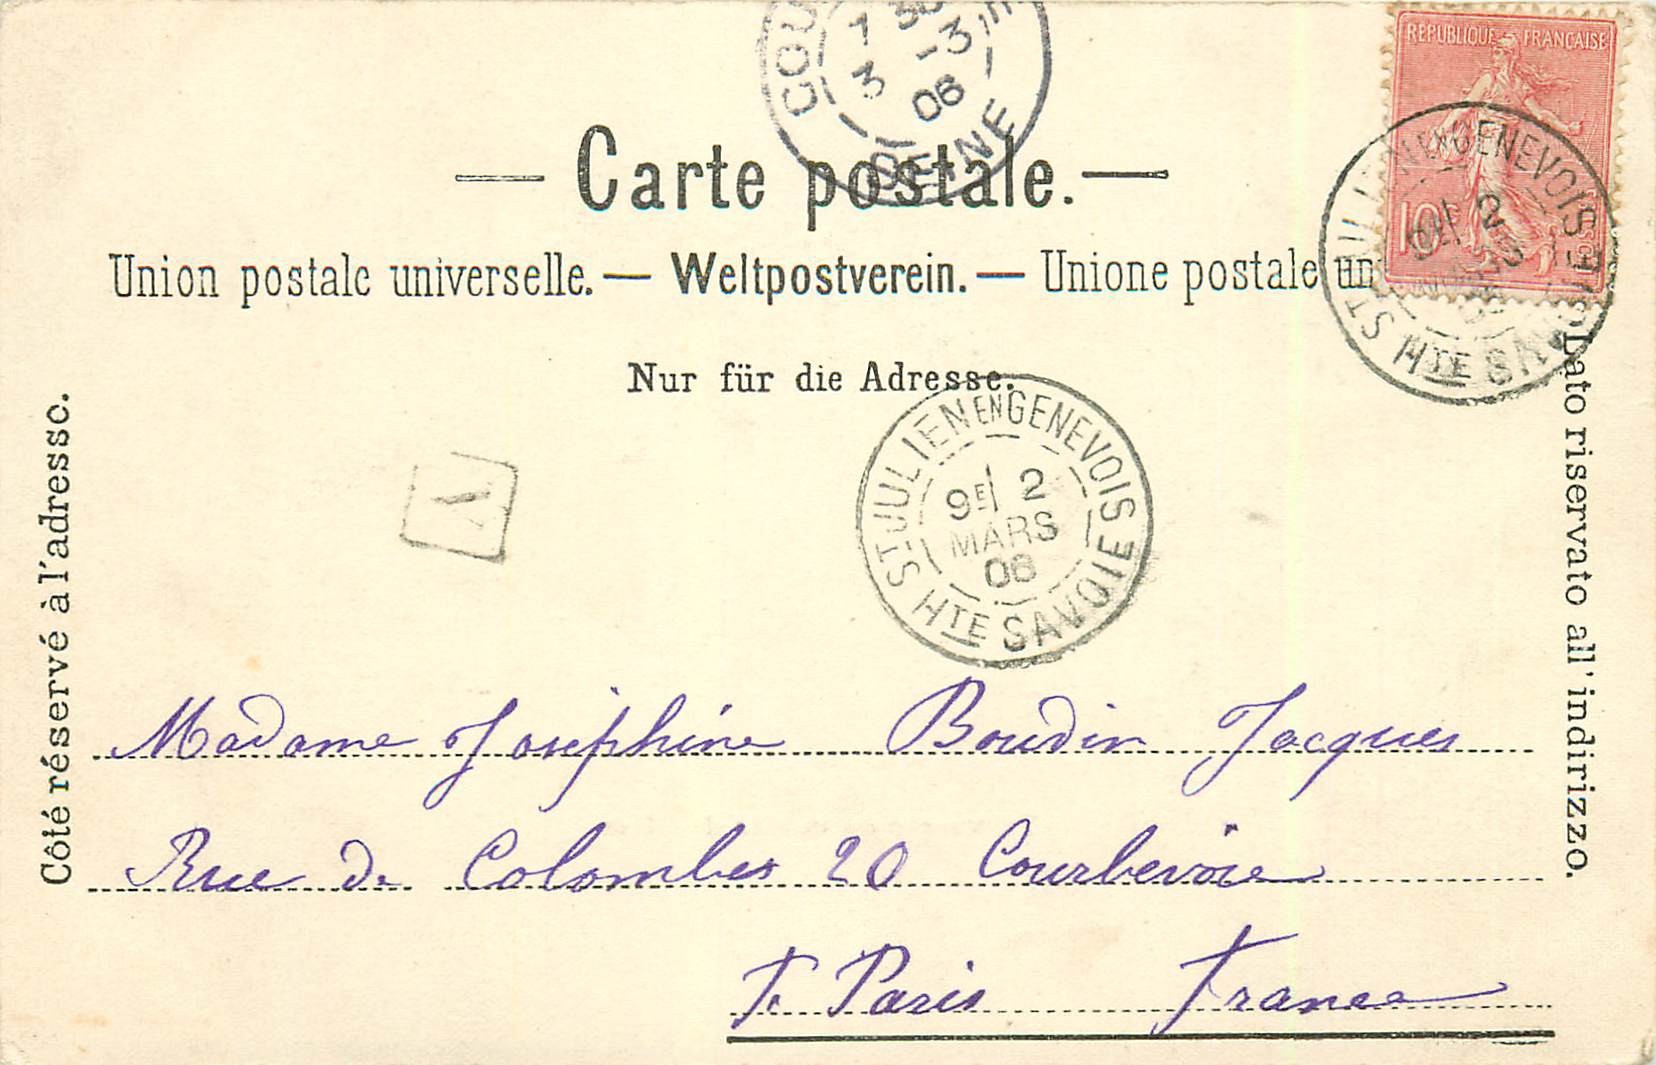 COU
7 30
3 -3
06
SEINE
RÉPUBLIQUE FRANÇAISE
10
— Carte postale. —
Union postale universelle. — Weltpostverein. — Unione postale un
ST JULIEN EN GENEVOIS
2
MARS
HTE SAVOIE
Nur für die Adresse.
Côté réservé à l'adresse.
Lato riservato all' indirizzo.
A
ST JULIEN EN GENEVOIS
9E 2
MARS
06
HTE SAVOIE
Madame Joséphine Boudin Jacques
Rue de Colombes 20 Courbevoie
Paris France